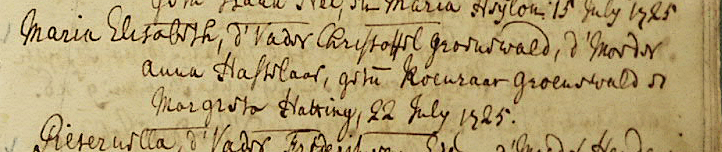 Maria Heÿlon 15 July 1725
Maria Elisabeth, d'Vader Christoffel Groenewald, d'Moeder
Anna Hasselaar, getu Koenraar Groenewald en
Margreta Hatting, 22 July 1725.
Pieternella, d'Vader Frederik d'Moeder